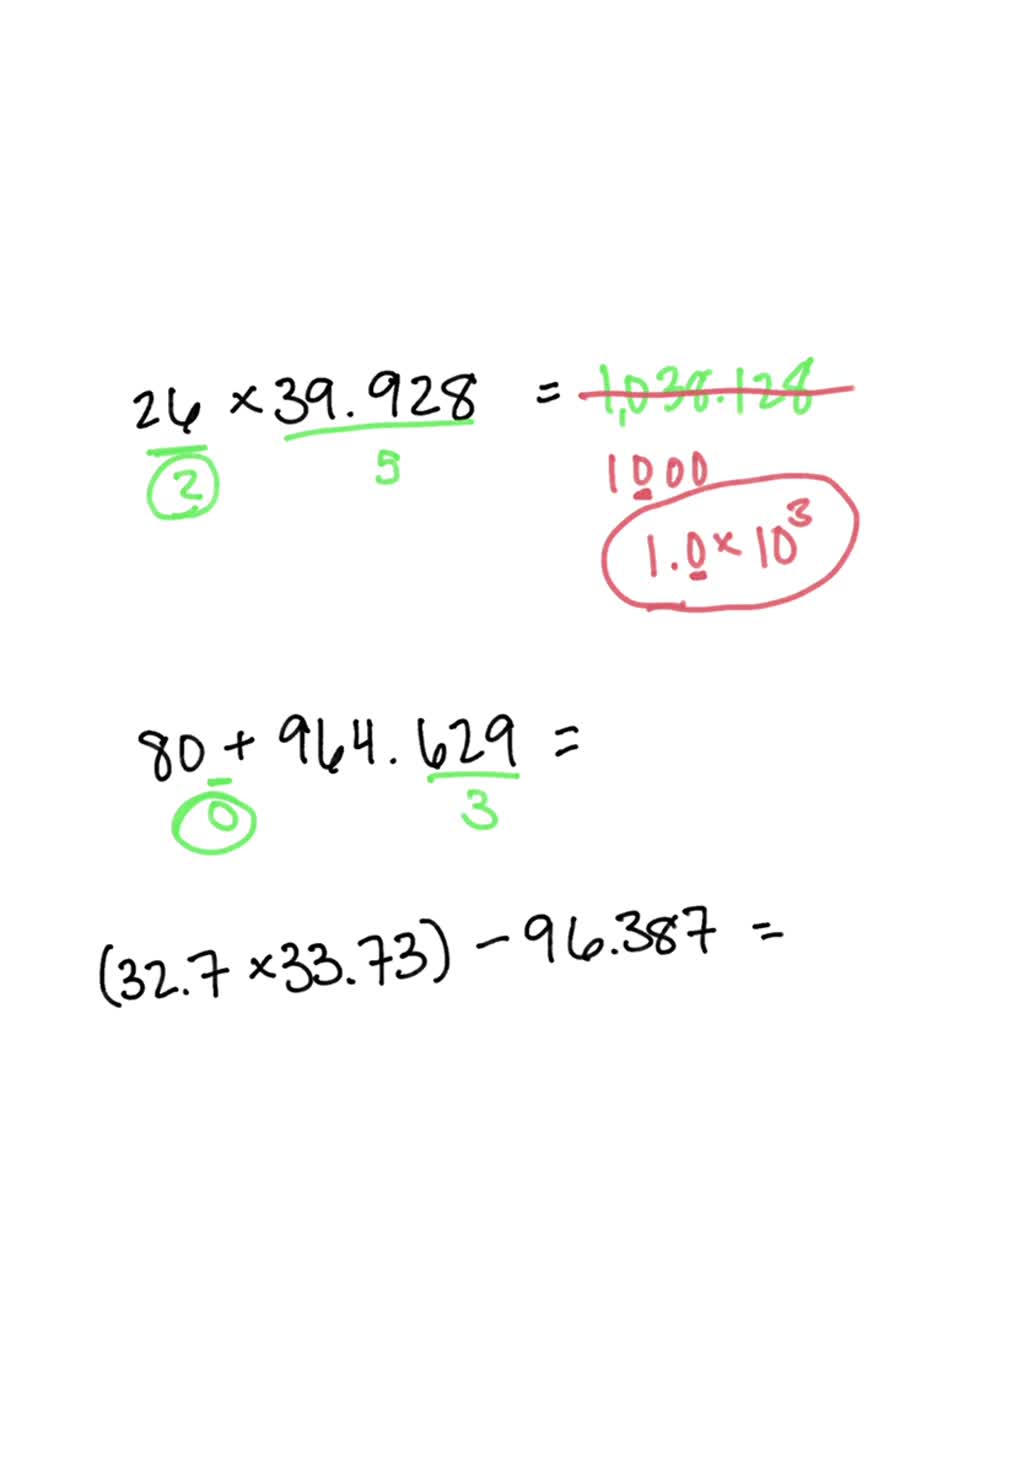 26 × 39.928 = 1,038.128
2 5
1000
1.0 × 10³
80 + 964.629 =
0 3
(32.7 × 33.73) - 96.387 =